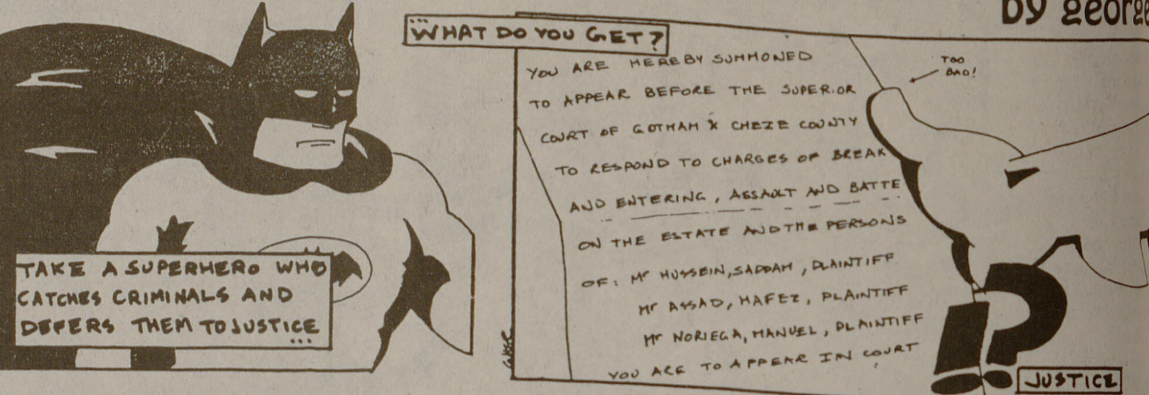 by george
TAKE A SUPERHERO WHO
CATCHES CRIMINALS AND
DEFERS THEM TO JUSTICE
...
...WHAT DO YOU GET?
YOU ARE HEREBY SUMMONED
TO APPEAR BEFORE THE SUPERIOR
COURT OF GOTHAM X CHEZE COUNTY
TO RESPOND TO CHARGES OF BREAK
AND ENTERING, ASSAULT AND BATTE
ON THE ESTATE AND THE PERSONS
OF: Mr HUSSEIN, SADDAM, PLAINTIFF
Mr ASSAD, HAFEZ, PLAINTIFF
Mr NORIEGA, MANUEL, PLAINTIFF
YOU ARE TO APPEAR IN COURT
TOO
BAD!
!?
JUSTICE